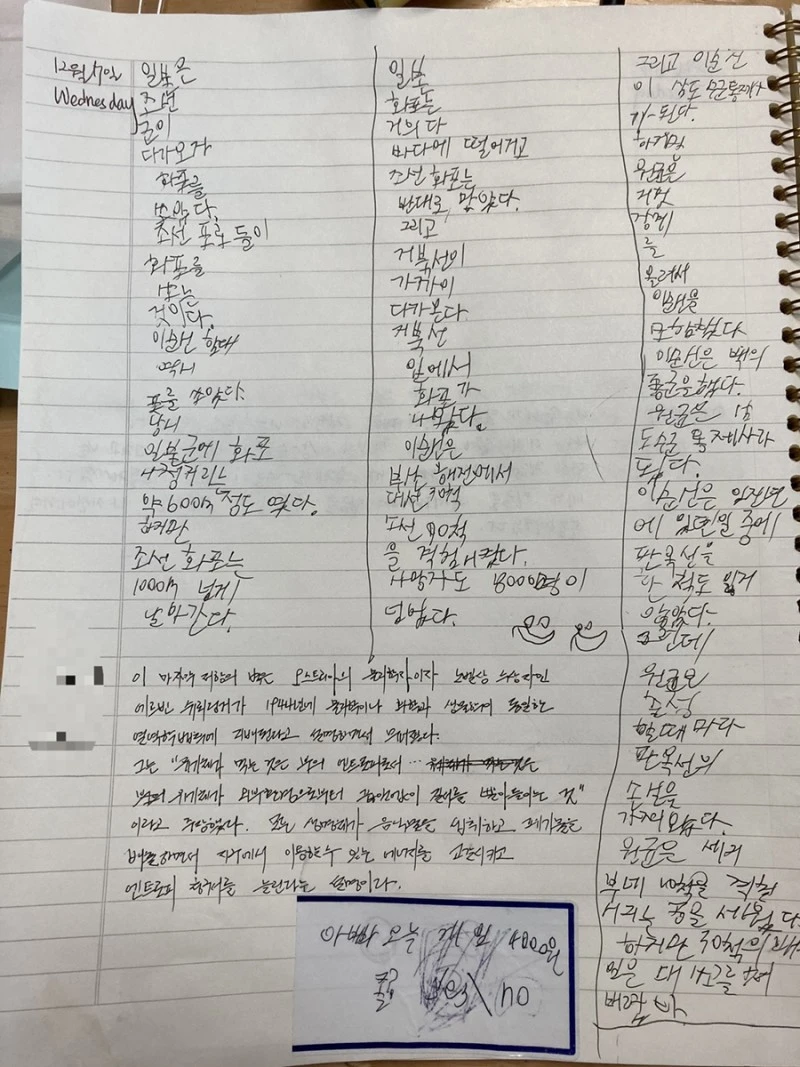 12월 17일
Wednesday
일본은
조선
군이
다가오자
화포를
쏘았다.
조선 포로들이
화포를
쏘는
것이다.
이순신 함대
역시
포를 쏘았다.
당시
일본군에 화포
사정거리는
약 600m 정도 였다.
하지만
조선 화포는
1000m 넘게
날아간다.
일본
화포는
거의 다
바다에 떨어지고
조선 화포는
반대로 맞았다.
그리고
거북선이
가까이
다가온다
거북선
입에서
화포가
나왔다.
이순신은
부산 해전에서
대선
소선 90척
을 격침시켰다.
사망자도
넘었다.
그리고 이순신
이 삼도 수군통제사
가 된다.
하지만
원균은
거짓
장계
를
올려서
이순신을
모함했다
이순신은 백의
종군을 했다.
원균은
도수군 통제사라
된다.
이순신은 임진년
에 일 중에
판옥선을
한 척도 잃지
않았다.
그런데
원균은
출정
할 때 마다
판옥선의
손실을
가져 왔다.
원균은
부대 격침
시키는 공을 세웠다
하지만 30척의
대
버렸다
이 마지막 오스트리아의 물리학자이자 노벨상 수상자인
에르빈 슈뢰딩거가 1944년에 물리학이나 화학과 동일한
열역학법칙에 지배된다고 설명하면서
그는 "유기체가 먹는 것은 부의 엔트로피로서…
유기체가 외부환경으로부터 질서를 받아들이는 것"
이라고 주장했다. 모든 생명체가 음식물을 섭취하고 폐기물을
배출하면서 지구에서 이용할 수 있는 에너지를 고갈시키고
엔트로피 늘린다는 설명이다.
아빠 오늘 4000원
Yes\no